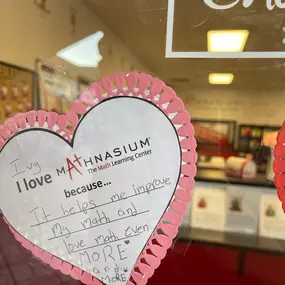 Ivy
I love MATHNASIUM®
The Math Learning Center
because...
It helps me improve
My math and
love math even
MORE
and
MORE
MATHNASIUM